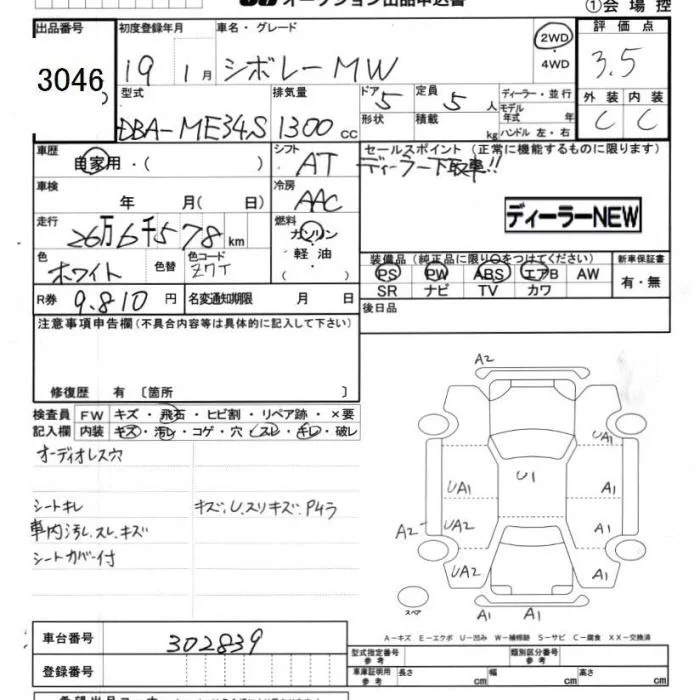 オークション出品申込書
①会場控
出品番号
3046
初度登録年月
19年 1月
車名・グレード
シボレーMW
2WD
・4WD
評価点
3.5
外装 内装
C C
型式
DBA-ME34S
排気量
1300cc
ドア 5
形状
定員 5人
積載 kg
ディーラー・並行
モデル年式 年
ハンドル 左・右
車歴
自家用・( )
シフト
AT
セールスポイント(正常に機能するものに限ります)
ディーラー下取車!!
ディーラーNEW
車検
年 月( 日)
冷房
AAC
走行
26万6千578km
燃料
ガソリン
・軽油
・( )
色
ホワイト
色替
色コード
Z7T
装備品(純正品に限り○をつけてください)
PS PW ABS エアB AW
SR ナビ TV カワ
新車保証書
有・無
R券 9.810円
名変通知期限 月 日
後日品
注意事項申告欄(不具合内容等は具体的に記入して下さい)
修復歴 有〔箇所 〕
検査員 FW キズ・飛石・ヒビ割・リペア跡・×要
記入欄 内装 キズ・汚レ・コゲ・穴・スレ・キレ・破レ
オーディオレス穴
シートキレ
キズ.U.スリキズ.P4ラ
車内汚レ.スレ.キズ
シートカバー付
A2
A1 A1
UA1 U1 A1
A2 UA2 A1
UA2 A1
スペア
A1 A1
A-キズ E-エクボ U-凹み W-補修跡 S-サビ C-腐食 XX-交換済
車台番号 302839
登録番号
型式指定番号 参考
類別区分番号 参考
車庫証明用 参考 長さ cm 幅 cm 高さ cm